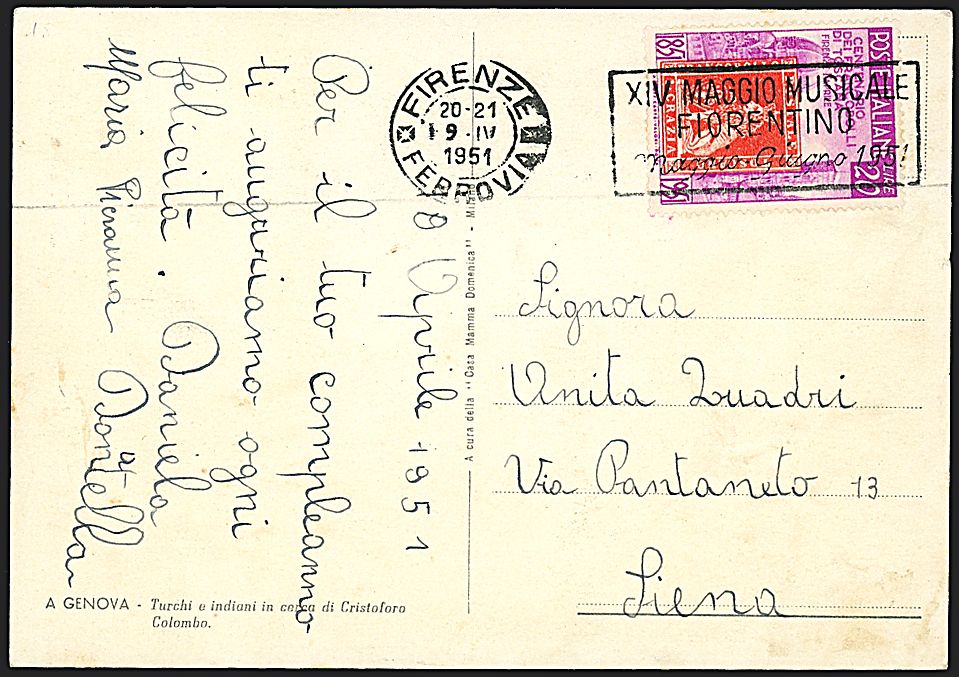 18 Aprile 1951
Per il tuo compleanno
ti auguriamo ogni
felicità. Daniela
Maria Pieranna Donatella
A GENOVA - Turchi e indiani in cerca di Cristoforo
Colombo.
A cura della "Casa Mamma Domenica" - Milano
FIRENZE
20-21
19·IV
1951
FERROVIA
XIV MAGGIO MUSICALE
FIORENTINO
Maggio Giugno 1951
POSTE ITALIANE
LIRE 20
CENTENARIO
DEI FRANCOBOLLI
DI TOSCANA
1851
1951
Signora
Anita Quadri
Via Pantaneto 13
Siena